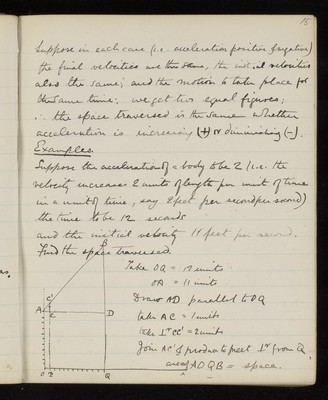 15
Suppose in each case (i.e. acceleration positive & negative)
the final velocities are the same, the initial velocities
also the same, and the motion to take place for
the same time: we get two equal figures;
∴ the space traversed is the same whether
acceleration is increasing (+) or diminishing (-).
Examples.
Suppose the acceleration of a body to be 2 (i.e. the
velocity increases 2 units of length per unit of time
in a unit of time, say 2 feet per second per second)
the time to be 12 seconds
and the initial velocity 11 feet per second.
Find the space traversed.
Take OQ = 12 units
OA = 11 units
Draw AD parallel to OQ
take AC = 1 units
take ⊥r CC' = 2 units
Join AC' & produce to meet ⊥r from Q.
area of AOQB = space.
B
C'
A C D
O Q